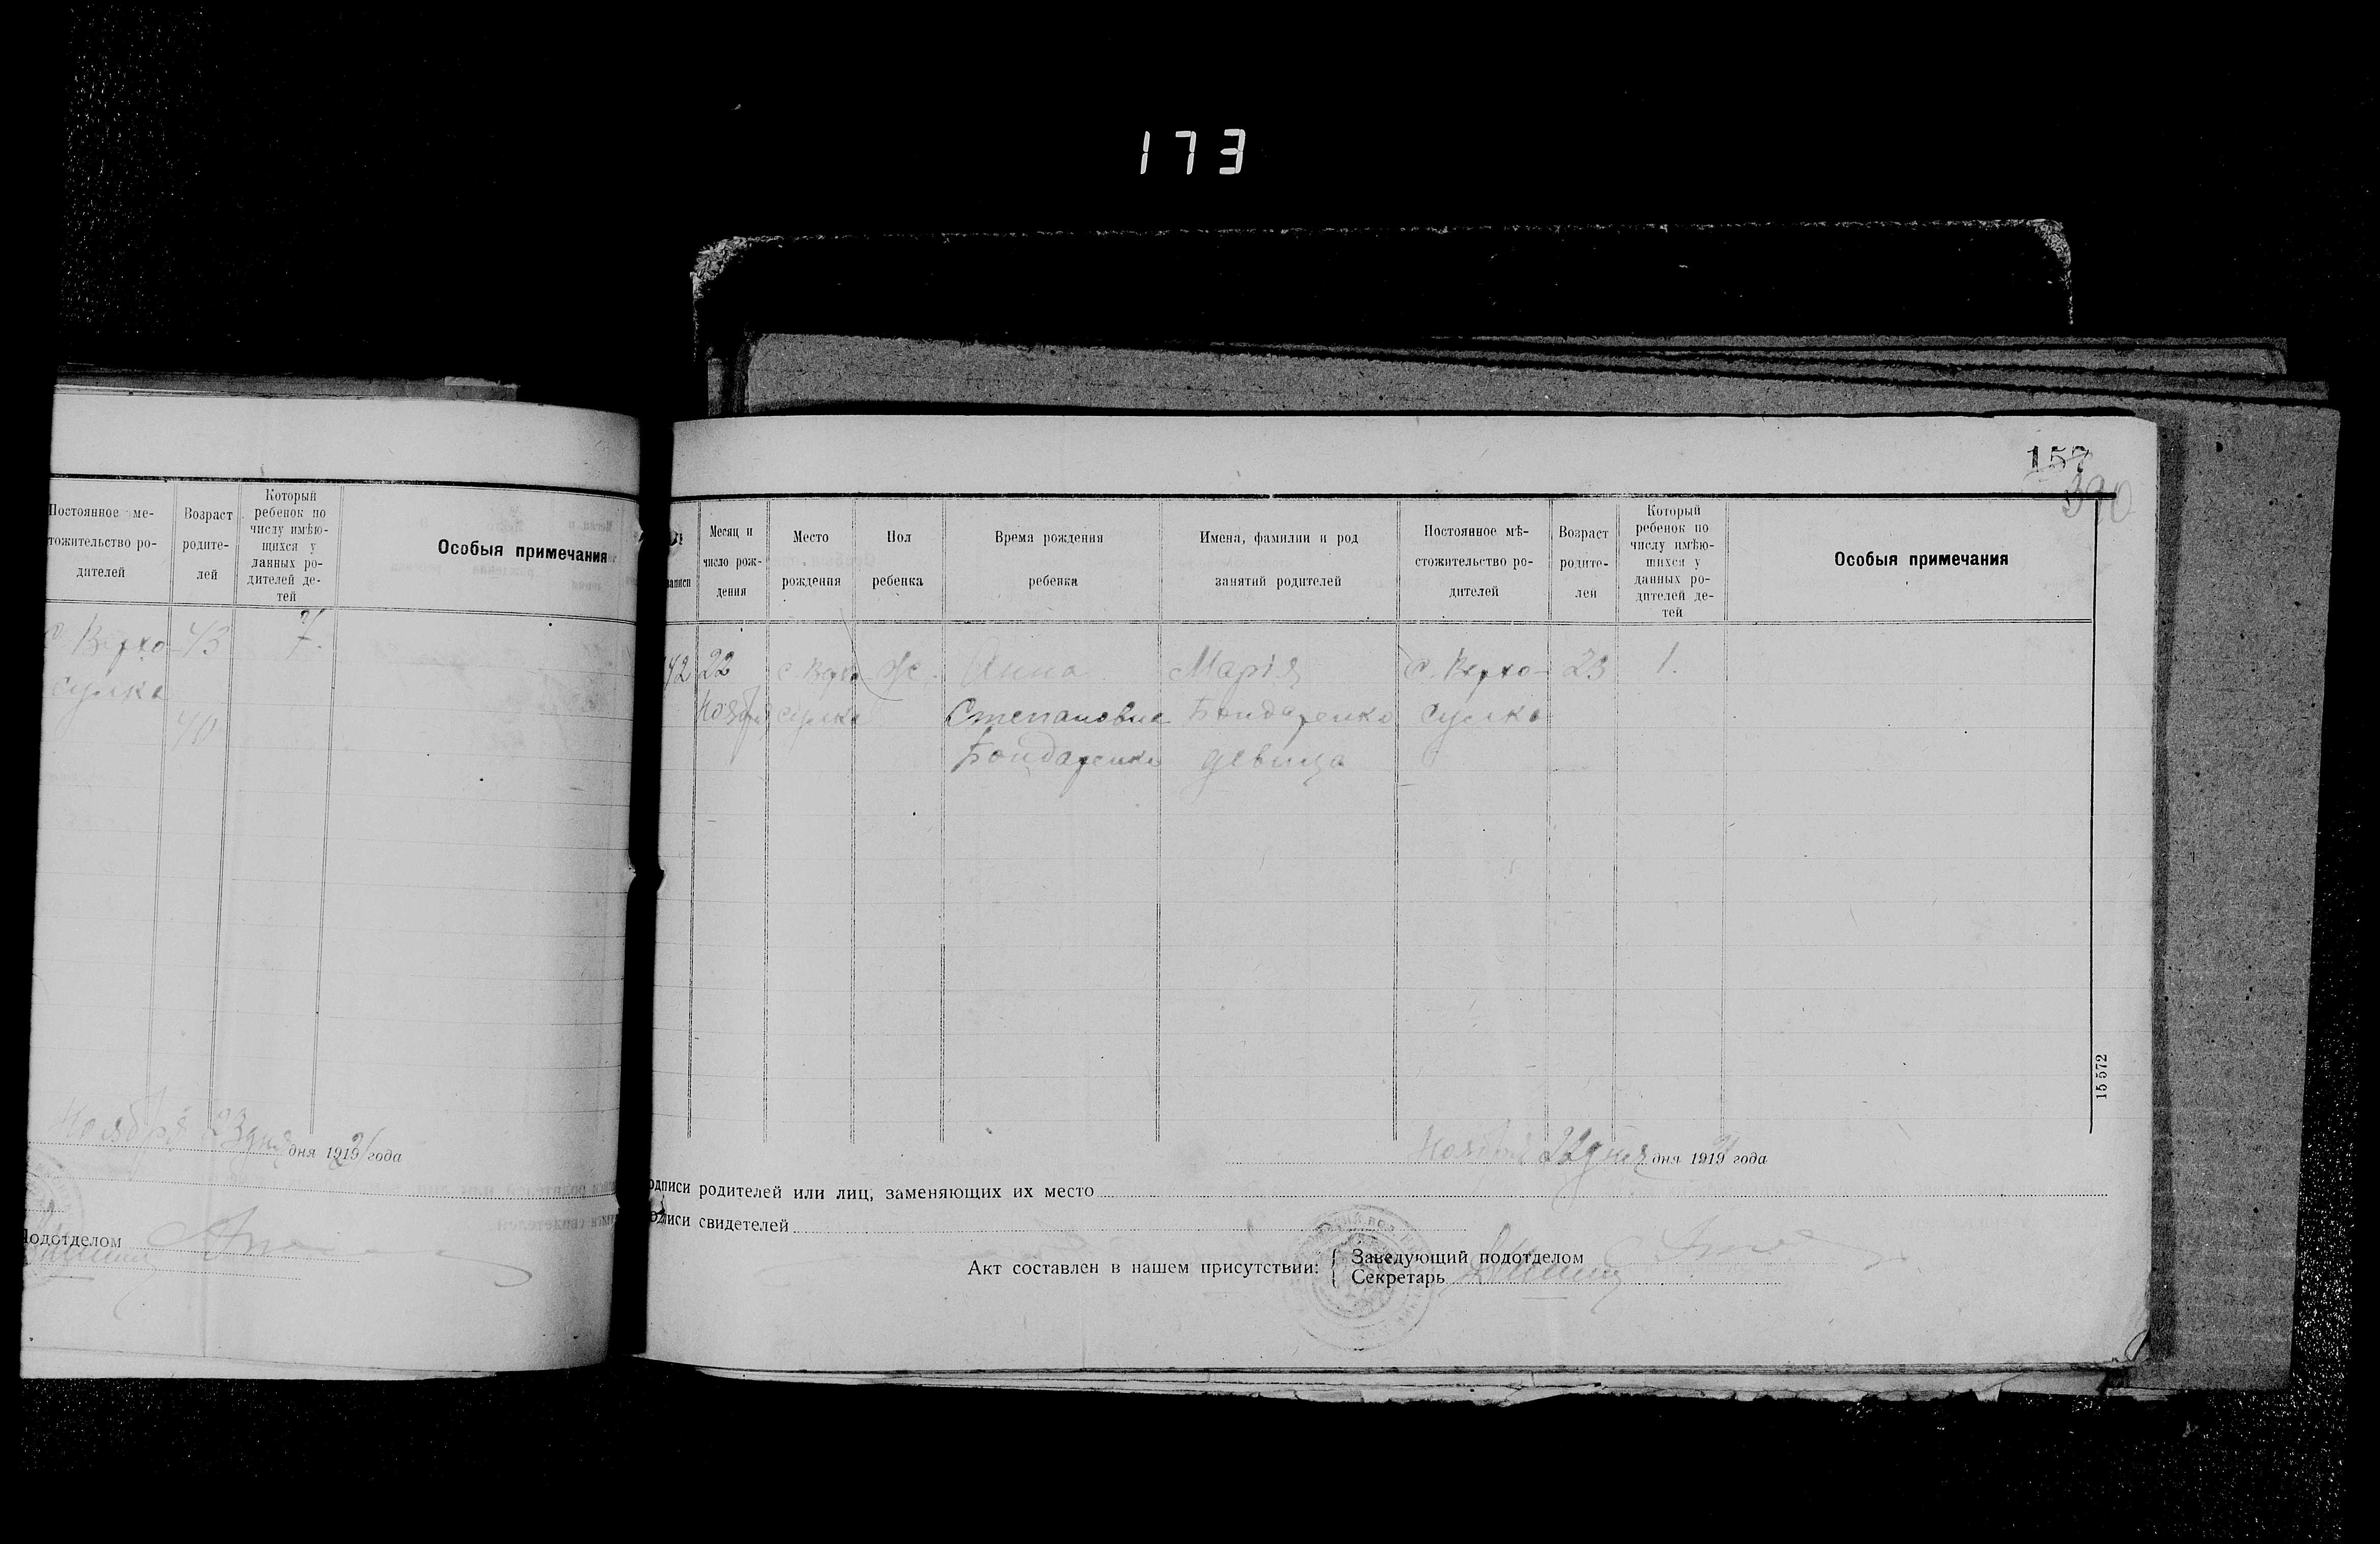 173
Постоянное ме-
тожительство ро-
дителей
Возраст
родите-
лей
Который
ребенок по
числу имѣю-
щихся у
данных ро-
дителей де-
тей
Особыя примечания
с. Верхо
сулка
43
40
7.
Ноября 23 дня дня 1921 года
Подотделом
157
390
записи
Месяц и
число рож-
дения
Место
рождения
Пол
ребенка
Время рождения
ребенка
Имена, фамилии и род
занятий родителей
Постоянное мѣ-
стожительство ро-
дителей
Возраст
родите-
лей
Который
ребенок по
числу имѣю-
щихся у
данных ро-
дителей де-
тей
Особыя примечания
42 22 с. Верхо Ж. Анна Марія с. Верхо- 23 1.
Ноября сулка Степановна Бондаренко сулка
Бондаренко девица
15 572
Ноября 22 дня дня 1921 года
одписи родителей или лиц, заменяющих их место
одписи свидетелей
Акт составлен в нашем присутствии:
Заведующий подотделом
Секретарь